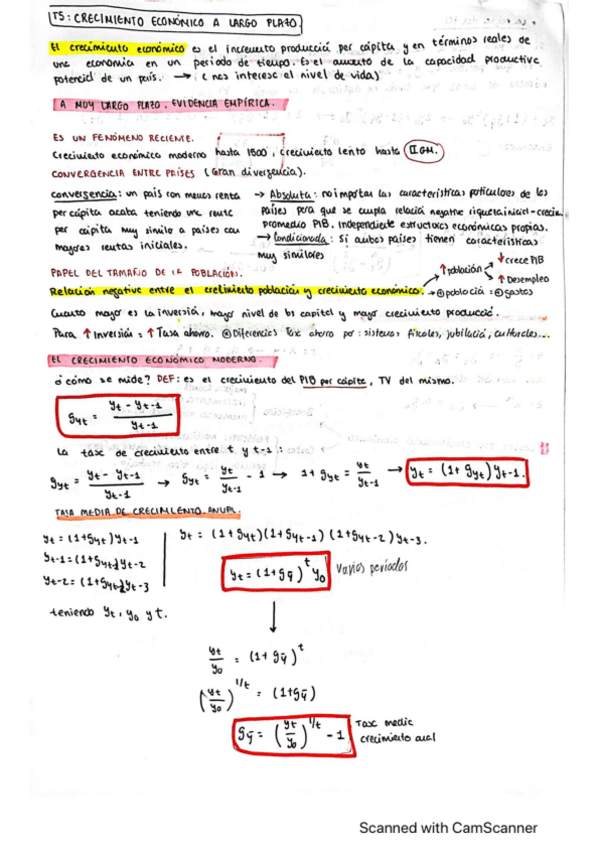 T5: CRECIMIENTO ECONÓMICO A LARGO PLAZO.
El crecimiento económico es el incremento producción per cápita y en términos reales de
una economía en un periodo de tiempo. Es el aumento de la capacidad productiva
potencial de un país. → (nos interesa el nivel de vida)
A MUY LARGO PLAZO, EVIDENCIA EMPÍRICA.
ES UN FENÓMENO RECIENTE.
Crecimiento económico moderno hasta 1500, crecimiento lento hasta II GM.
CONVERGENCIA ENTRE PAÍSES (Gran divergencia).
convergencia: un país con menos renta
per cápita acaba teniendo una renta
per cápita muy similar a países con
mayores rentas iniciales.
→ Absoluta: no importan las características particulares de los
países para que se cumpla relación negativa riqueza inicial-crecim.
promedio PIB. Independiente estructuras económicas propias.
→ Condicionada: Si ambos países tienen características
muy similares
PAPEL DEL TAMAÑO DE LA POBLACIÓN.
Relación negativa entre el crecimiento población y crecimiento económico.
↑ población → ↓ crece PIB
→ ↑ Desempleo
→ ⊕ población = ⊕ gastos
Cuanto mayor es la inversión, mayor nivel de bs capital y mayor crecimiento producció.
Para ↑ Inversión = ↑ Tasa ahorro. ⊛ Diferencias Tax ahorro por: sistemas fiscales, jubilació, culturales...
EL CRECIMIENTO ECONÓMICO MODERNO.
¿cómo se mide? DEF: es el crecimiento del PIB per cápita, TV del mismo.
gyt = (yt - yt-1) / yt-1
La tasa de crecimiento entre t y t-1:
gyt = (yt - yt-1) / yt-1 → gyt = yt / yt-1 - 1 → 1 + gyt = yt / yt-1 → yt = (1+ gyt) yt-1.
TASA MEDIA DE CRECIMIENTO ANUAL.
yt = (1+gyt) yt-1
yt-1 = (1+gyt-1) yt-2
yt-2 = (1+gyt-2) yt-3
teniendo yt, y0 y t.
yt = (1+gyt)(1+gyt-1)(1+gyt-2) yt-3.
yt = (1+gȳ)^t y0 Varios periodos
yt / y0 = (1+gȳ)^t
(yt / y0)^1/t = (1+gȳ)
gȳ = (yt / y0)^1/t - 1
Tasa media
crecimiento anual
Scanned with CamScanner